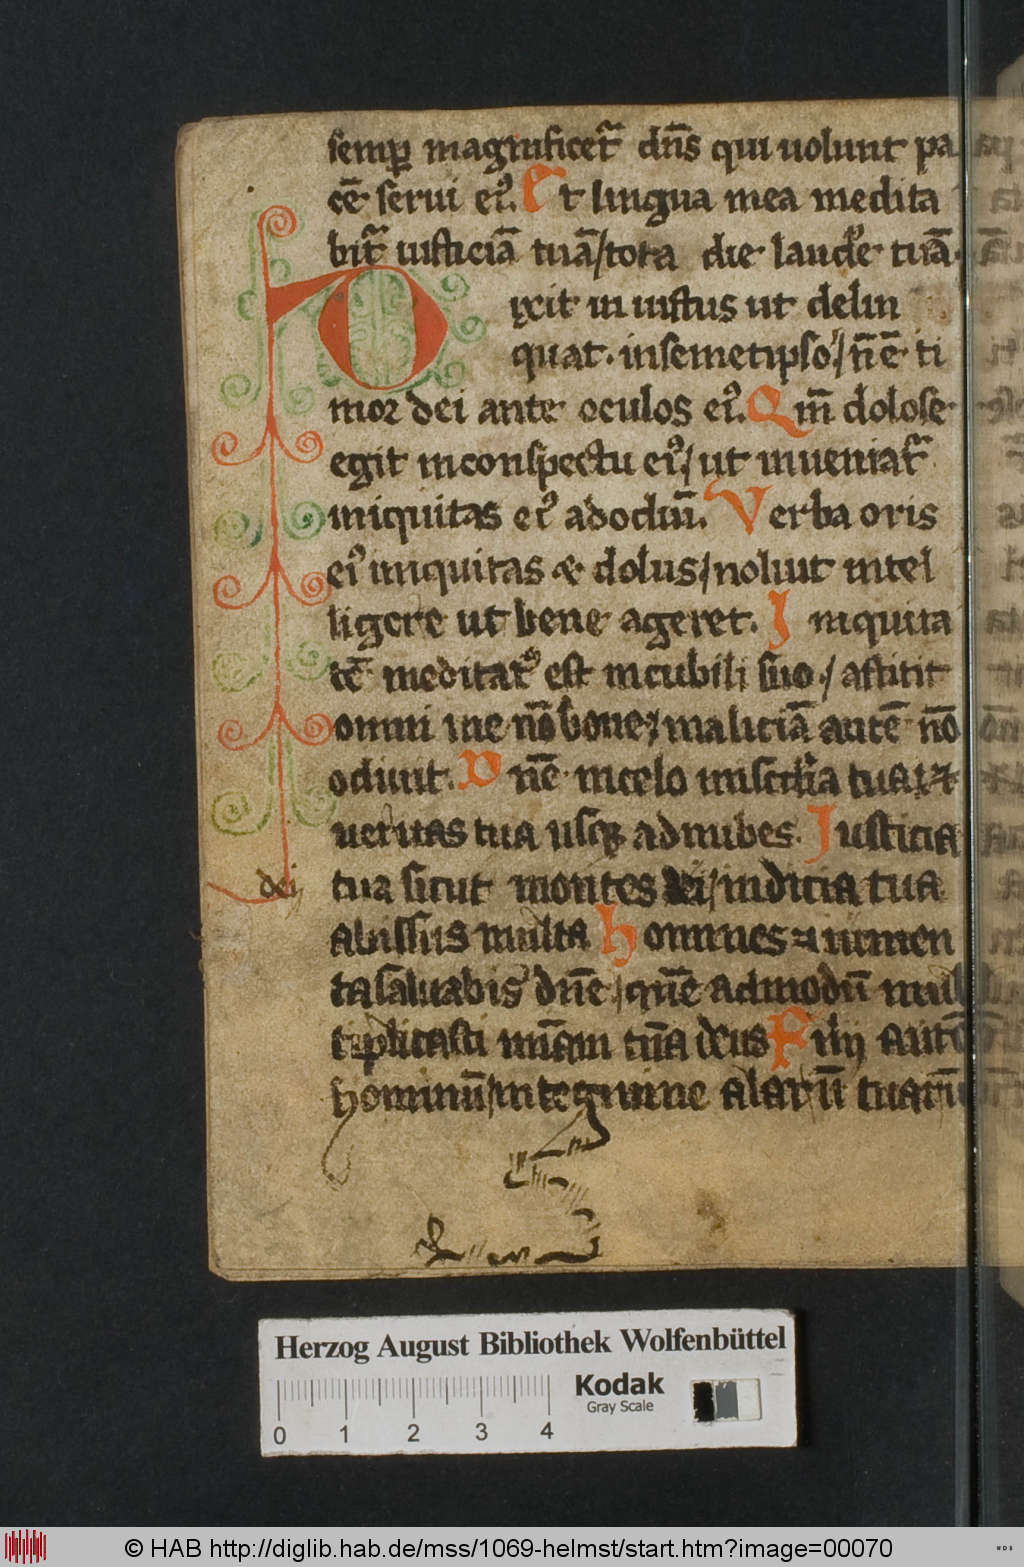 semꝑ magnificet᷑ dn̄s qui uolunt pa
cē serui eiꝰ. Et lingua mea medita
bit᷑ iusticiā tuā / tota die laudē tuā.
Dixit iniustus ut delin
quat. insemetipso / nē ti
mor dei ante oculos eiꝰ. Qm̄ dolose
egit inconspectu eiꝰ / ut inueniat᷑
iniquitas eiꝰ adodiū. Verba oris
eiꝰ iniquitas & dolus / noluit intel
ligere ut bene ageret. Iniquita
tē meditat᷑ est incubili suo / astitit
omni uie nō bone / maliciā autē nō
odiuit. Dnē incelo mīscd̄ia tua ⁊
ueritas tua usqꝫ adnubes. Iusticia
dei tua sicut montes dei / iudicia tua
abissus multa Homines ⁊ iumen
ta saluabis dn̄e / quē admodū mul
tiplicasti mīam tuā deus Filij autē
hominū / integmine alarū tuarū
Herzog August Bibliothek Wolfenbüttel
Kodak
Gray Scale
0 1 2 3 4
© HAB http://diglib.hab.de/mss/1069-helmst/start.htm?image=00070